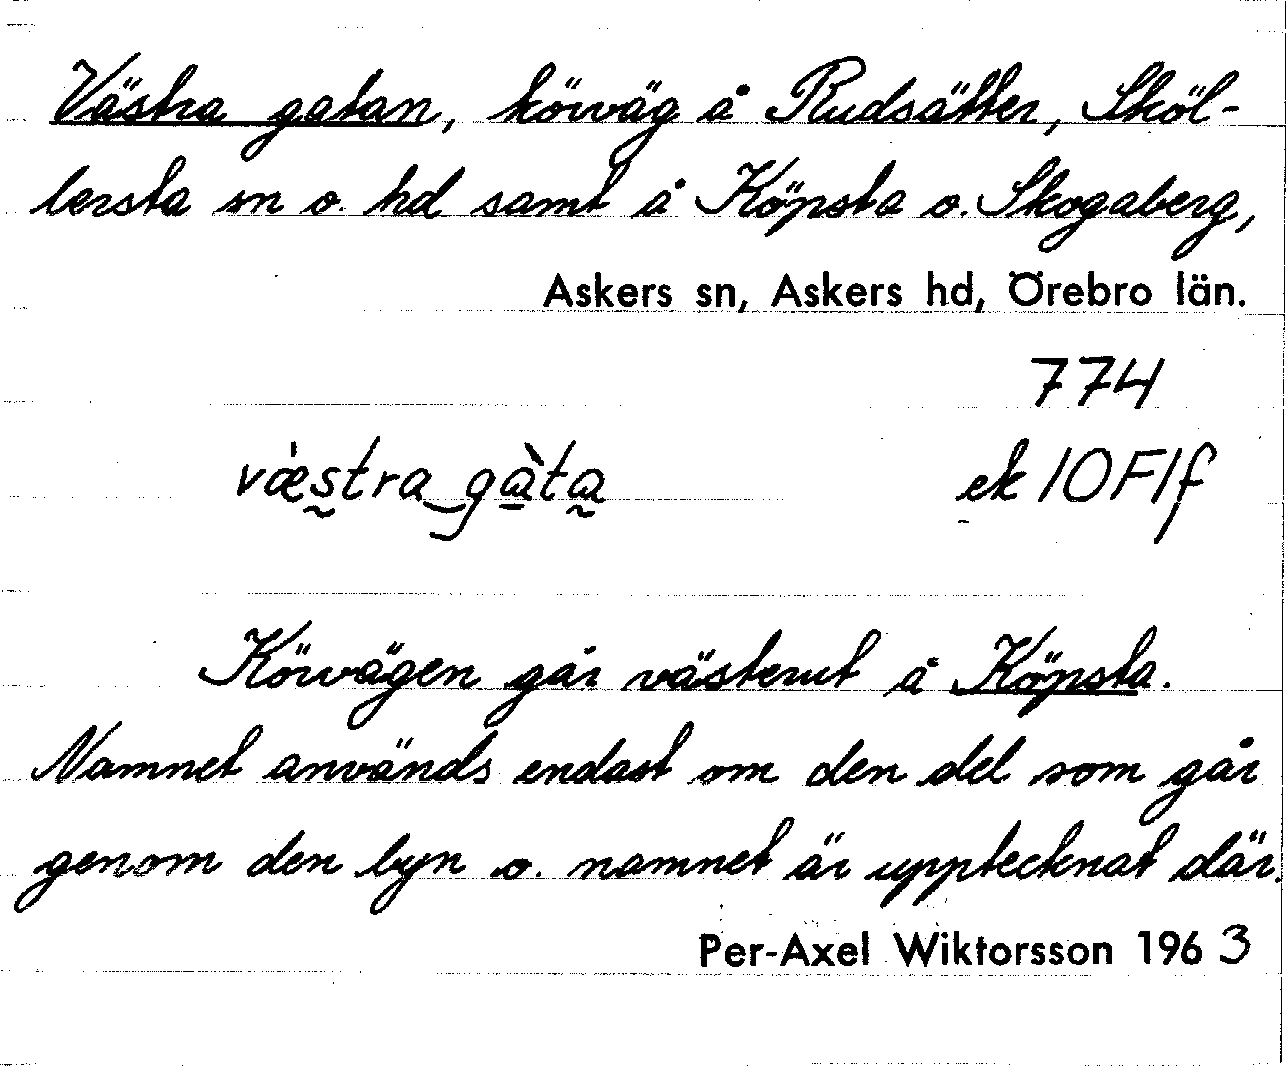 Västra gatan, körväg å Rudsätter, Sköl-
lersta sn o. hd samt å Köpsta o. Skogaberg,
Askers sn, Askers hd, Örebro län.
774
væ̀stra gàta ek 10F1f
Körvägen går västerut å Köpsta.
Namnet används endast om den del som går
genom den byn o. namnet är upptecknat där.
Per-Axel Wiktorsson 1963